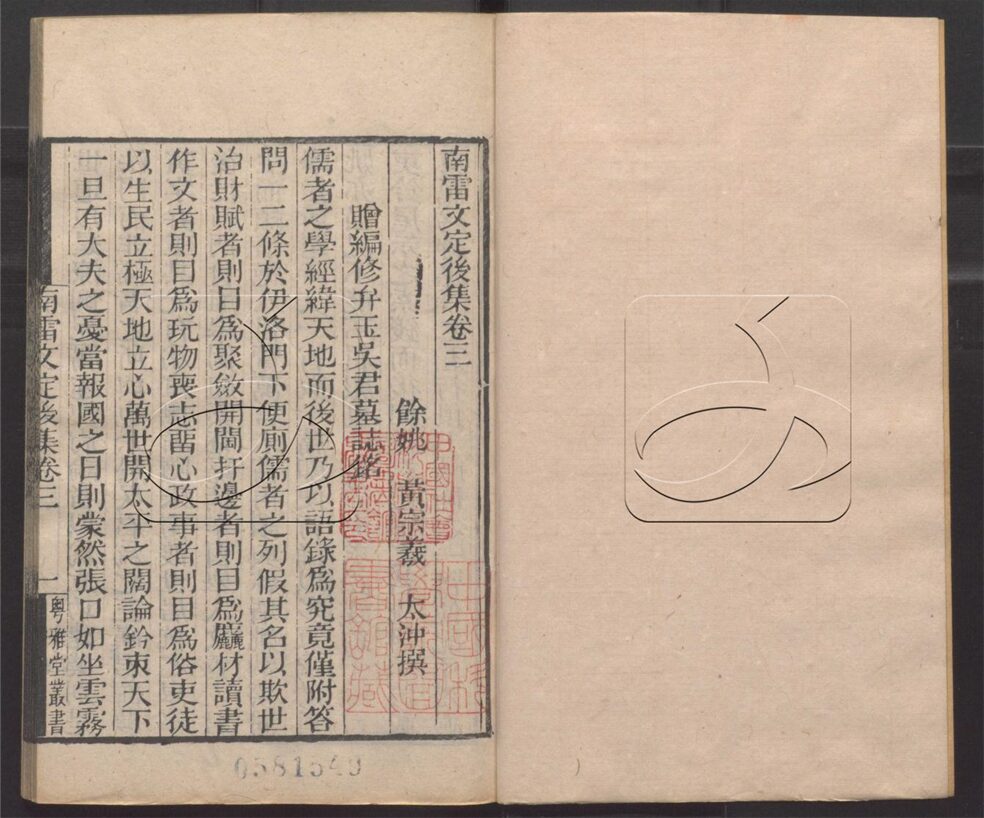 南雷文定後集卷三
餘姚 黃宗羲 太沖撰
贈編修弁玉吳君墓誌銘
儒者之學經緯天地而後世乃以語錄爲究竟僅附答
問一二條於伊洛門下便廁儒者之列假其名以欺世
治財賦者則目爲聚斂開閫扞邊者則目爲麤材讀書
作文者則目爲玩物喪志畱心政事者則目爲俗吏徒
以生民立極天地立心萬世開太平之闊論鈐束天下
一旦有大夫之憂當報國之日則蒙然張口如坐雲霧
南雷文定後集卷三
一
粤雅堂叢書
0581549